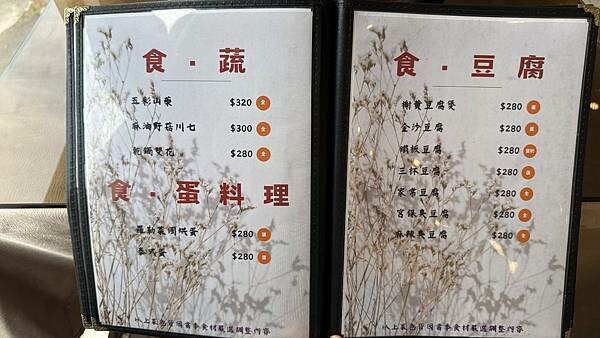 食．蔬
五彩山藥 $320 全
麻油野菇川七 $300 全
乾鍋雙花 $280 全
食．蛋料理
羅勒菜圃烘蛋 $280 蛋
泰式蛋 $280 蛋
以上菜色皆因當季食材嚴選調整內容
食．豆腐
蟹黃豆腐煲 $280 蛋
金沙豆腐 $280 蛋
鐵板豆腐 $280
三杯豆腐 $280
家常豆腐 $280 全
宮保臭豆腐 $280 全
麻辣臭豆腐 $280 全
以上菜色皆因當季食材嚴選調整內容